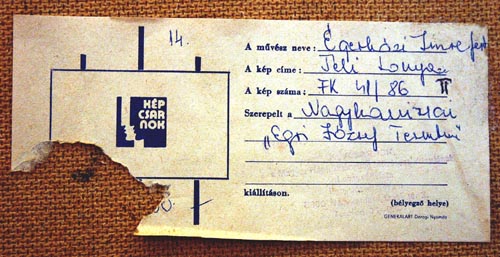 14.
KÉP
CSAR
NOK
A művész neve: Égerházi Imre fest
A kép címe: Téli tanya
A kép száma: FK 41/86 II
Szerepelt a Nagykanizsai
„Egri József Terembe"
kiállításon.
(bélyegző helye)
GENERÁLART Dorogi Nyomda